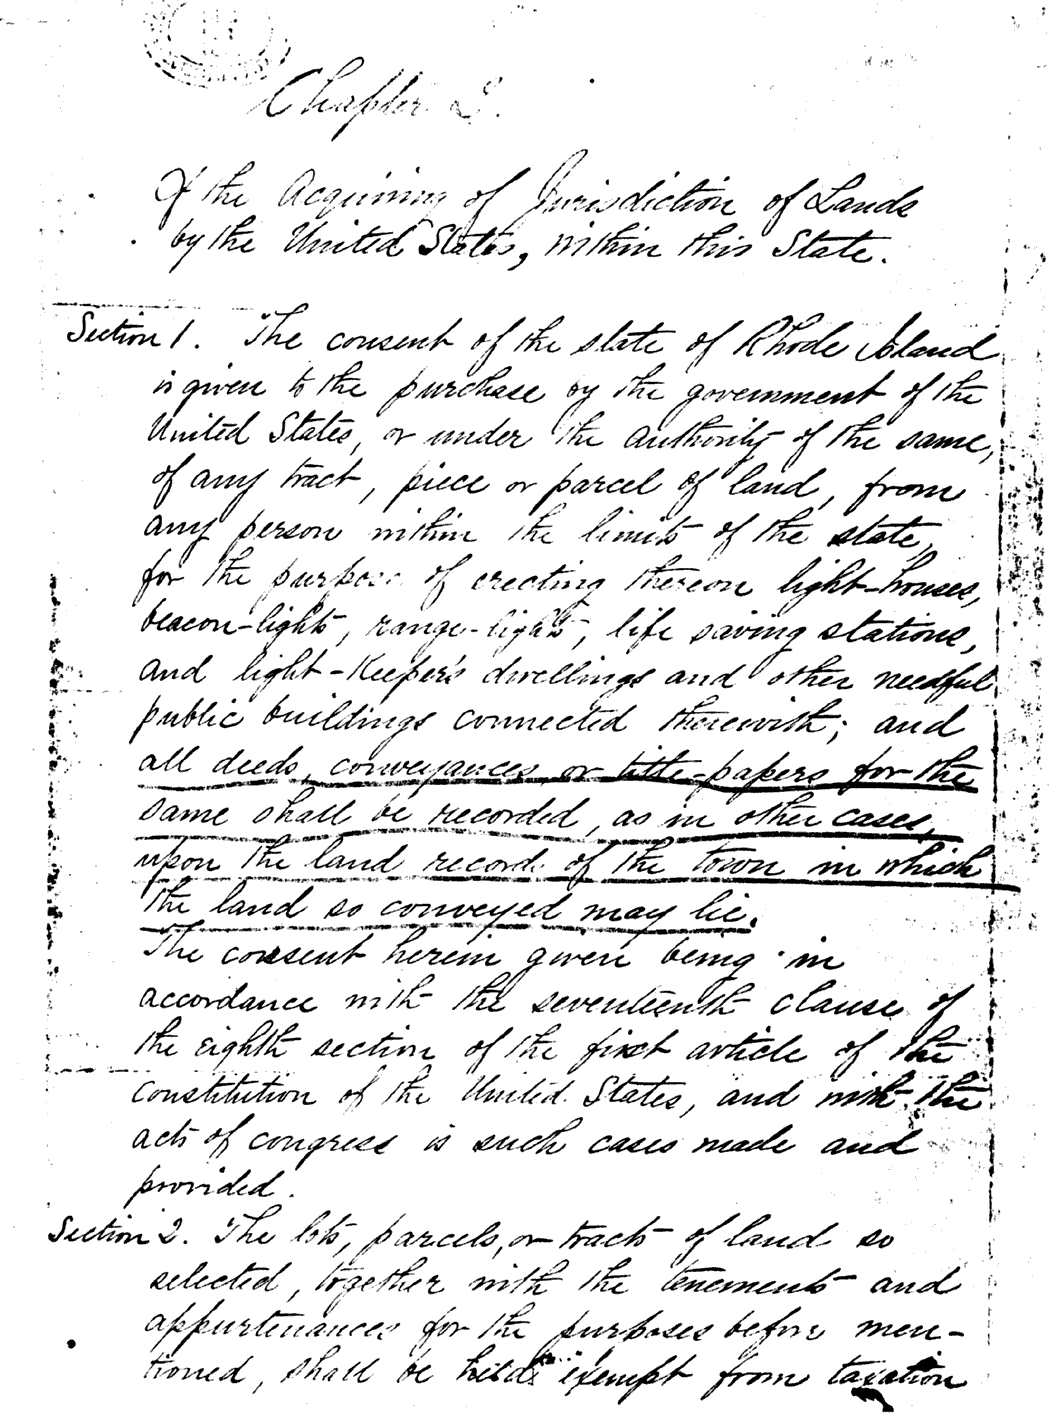 Chapter 2.
Of the Acquiring of Jurisdiction of Lands
by the United States, within this State.
Section 1. The consent of the state of Rhode Island
is given to the purchase by the government of the
United States, or under the authority of the same,
of any tract, piece or parcel of land, from
any person within the limits of the state,
for the purpose of erecting thereon light-houses,
beacon-lights, range-lights, life saving stations,
and light-Keeper's dwellings and other needful
public buildings connected therewith; and
all deeds, conveyances or title-papers for the
same shall be recorded, as in other cases,
upon the land records of the town in which
the land so conveyed may lie.
The consent herein given being in
accordance with the seventeenth clause of
the eighth section of the first article of the
constitution of the United States, and with the
acts of congress is such cases made and
provided.
Section 2. The lots, parcels, or tracts of land so
selected, together with the tenements and
appurtenances for the purposes before men-
tioned, shall be held exempt from taxation